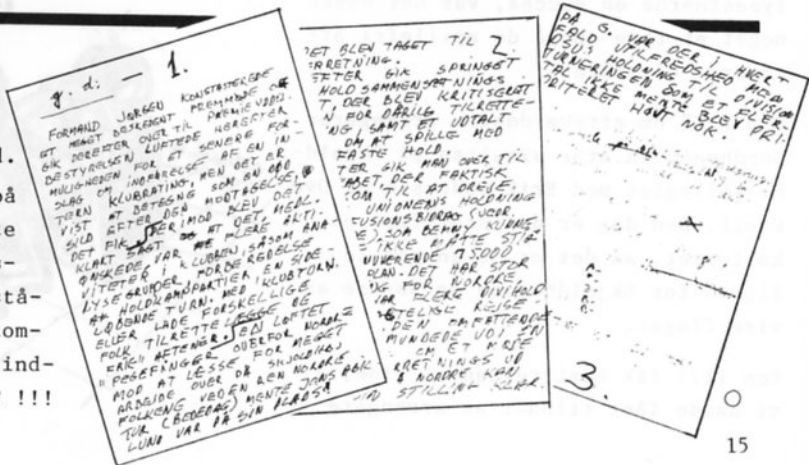 g. d: — 1.
FORMAND JØRGEN KONSTATEREDE
ET MEGET BESKEDENT FREMMØDE OG
GIK DEREFTER OVER TIL PRÆMIEUDD.
BESTYRELSEN LUFTEDE HEREFTER
MULIGHEDEN FOR ET SENERE FOR-
SLAG OM INDFØRELSE AF EN IN-
TERN KLUBRATING, MEN DET ER
VIST AT BETEGNE SOM EN DØD
SILD EFTER DEN MODTAGELSE,
DET FIK. DERIMOD BLEV DET
KLART SAGT AT DET, MEDL.
ØNSKEDE VAR FLERE AKTI-
VITETER I KLUBBEN, SÅSOM ANA-
LYSEGRUPPER, FORBEREDELSE
AF HOLDKAMPPARTIER, EN SIDE-
LØBENDE TURN. MED KLUBTURN.
ELLER LADE FORSKELLIGE
FOLK TILRETTELÆGGE OG
"FRIE" AFTENER. EN LØFTET
PEGEFINGER OVERFOR NORDRE
MOD AT LÆSSE FOR MEGET
ARBEJDE OVER PÅ
FOLKENE VEDEN REN NORDRE
TUR (BEDEDAG) MENTE JENS ABIL
LUND VAR PÅ SIN PLADS!
2
ET BLEV TAGET TIL
RETNING.
EFTER GIK SPRINGET
HOLDSAMMENSÆTNINGS
T, DER BLEV KRITISERET
N FOR DÅRLIG TILRETTE-
NG, SAMT ET UDTALT
OM AT SPILLE MED
FASTE HOLD.
TER GIK MAN OVER TIL
ABET DER FAKTISK
OM TIL AT DREJE
UNIONENS HOLDNING
FUSIONSBIDRAG (VOOR.
E) SOM BENNY
IKKE MÅTTE STIG
NUVÆRENDE 15.000
PLAN. DET HAR STOR
NG FOR NORDRE
HAR FLERE DIVIHOLD
STELIGE REJSE-
DEN OMFATTENDE
MUNDEDE UD I EN
OM ET MØDE
RRETNINGS UD
NORDRE KAN
IN STILLING KLAR.
PÅ G. VAR DER I HVERT
FALD UTILFREDSHED MED
DSU'S HOLDNING TIL DIVISION
TURNERINGEN SOM ET FLER-
TAL IKKE MENTE BLEV PRI-
ORITERET HØJT NOK.
3.
l.
på
te
-
stå-
om-
ind-
!!!
15